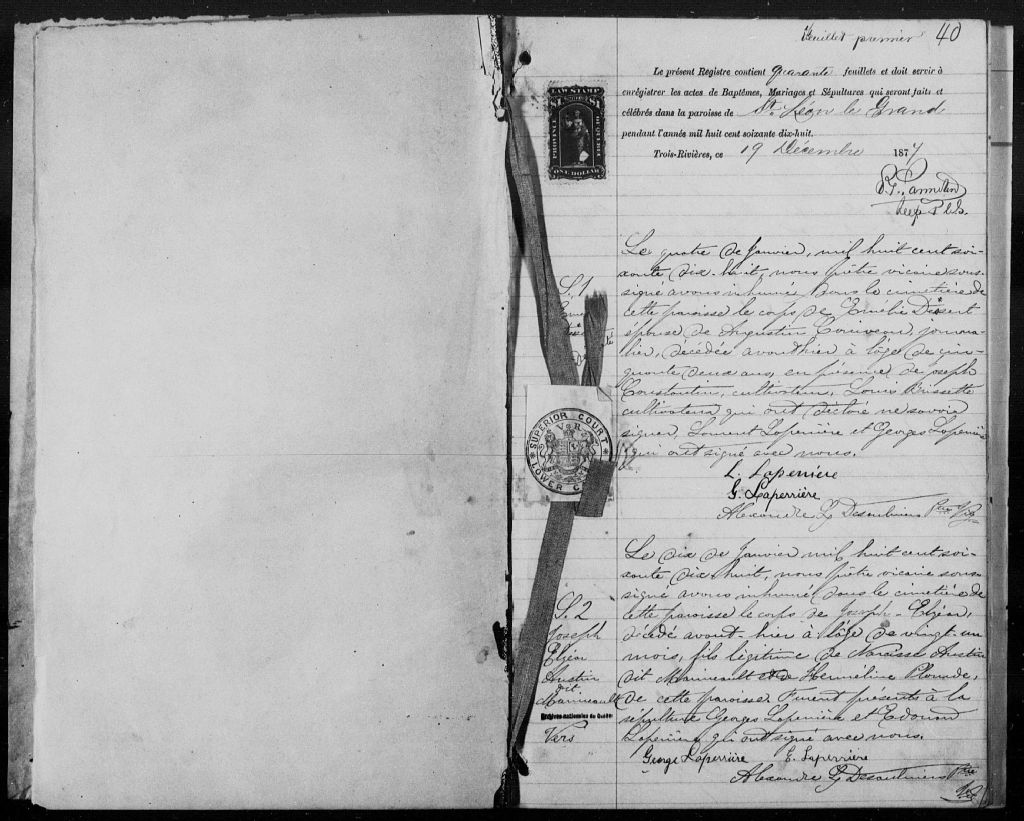 Feuillet premier 40
Le présent Registre contient quarante feuillets et doit servir à
enrégistrer les actes de Baptêmes, Mariages et Sépultures qui seront faits et
célébrés dans la paroisse de St. Léon le Grand
pendant l'année mil huit cent soixante dix-huit.
Trois-Rivières, ce 19 Décembre 1877
LAW STAMP
$1 $1
PROVINCE OF QUEBEC
ONE DOLLAR
S. 1
Le quatre de Janvier, mil huit cent soi-
xante dix-huit, nous prêtre vicaire sous-
signé avons inhumé dans le cimetière de
cette paroisse le corps de Emélie
épouse de Augustin journa-
lier, décédée avant hier à l'âge de cin-
quante deux ans, en présence de Joseph
Constantin, cultivateur, Louis Brissette
cultivateur qui ont déclaré ne savoir
signer, Laurent Laperrière et Georges Laperrière
qui ont signé avec nous.
L. Laperriere
G. Laperrière
Alexandre L Desaulniers Ptre Vic
SUPERIOR COURT
V R
LOWER C
S. 2
Joseph
Elzéar
Austin
dit
Manneault
Archives nationales du Québec
Vers
Le dix de Janvier mil huit cent soi-
xante dix-huit, nous prêtre vicaire sous-
signé avons inhumé dans le cimetière de
cette paroisse le corps de Joseph-Elzéar,
décédé avant-hier à l'âge de vingt-un
mois, fils légitime de Narcisse Austin
dit Manneault et de Herméline Plourde,
de cette paroisse. Furent présents à la
sépulture Georges Laperrière et Edouard
Laperrière qui ont signé avec nous.
George Laperrière E. Laperrière
Alexandre L Desaulniers Ptre
Vic